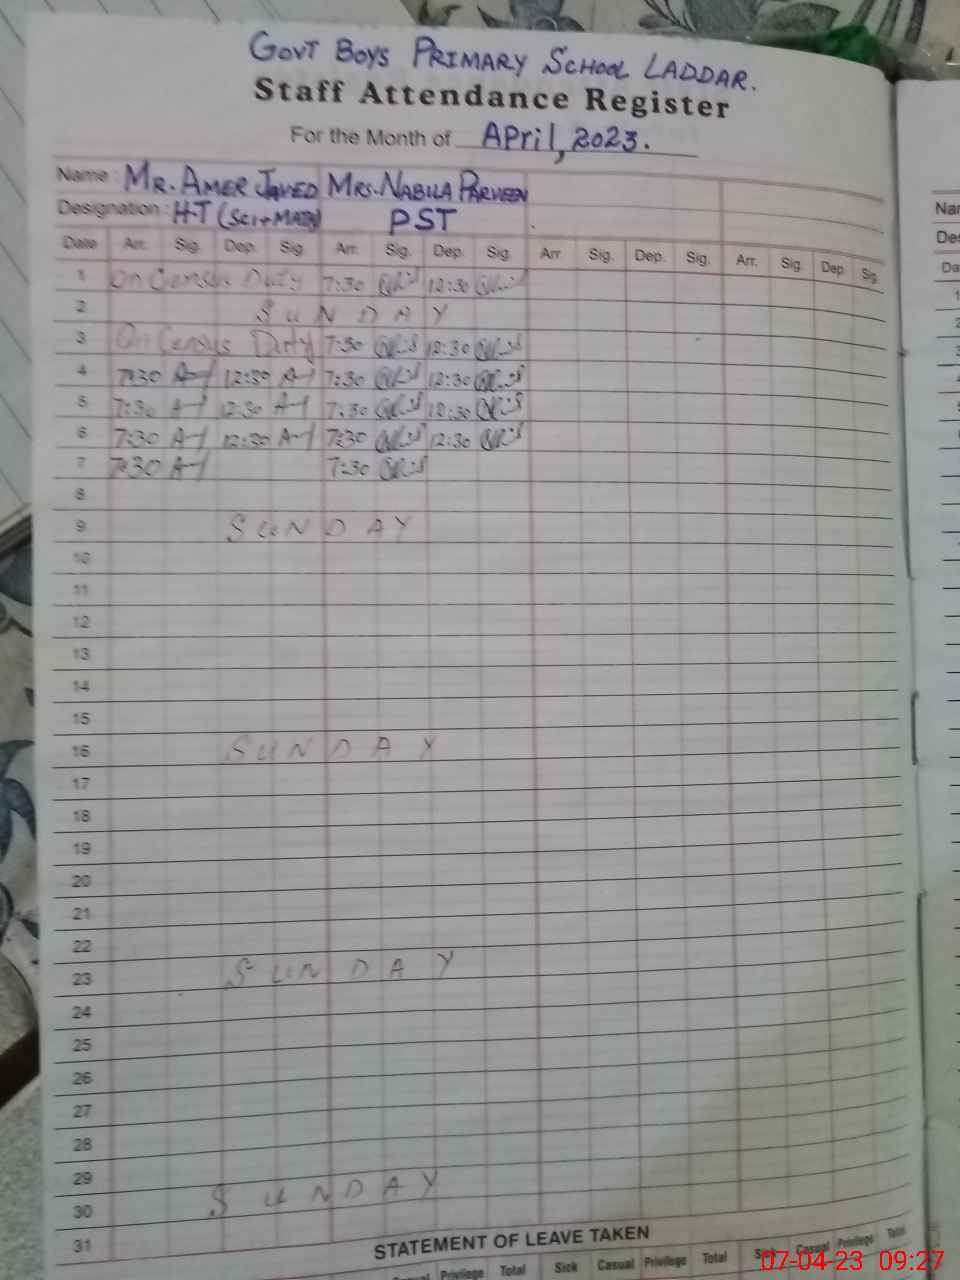 GOVT BOYS PRIMARY SCHOOL LADDAR.
Staff Attendance Register
For the Month of April, 2023.
Name: MR. AMER JAVED MRS. NABILA PARVEEN
Designation: H-T (SCI+MATH) PST
Date Arr. Sig. Dep. Sig. Arr. Sig. Dep. Sig. Arr. Sig. Dep. Sig. Arr. Sig. Dep. Sig.
1 On Census Duty 7:30 12:30
2 SUNDAY
3 On Census Duty 7:30 12:30
4 7:30 12:30 7:30 12:30
5 7:30 12:30 7:30 12:30
6 7:30 12:30 7:30 12:30
7 7:30 7:30
8
9 SUNDAY
10
11
12
13
14
15
16 SUNDAY
17
18
19
20
21
22
23 SUNDAY
24
25
26
27
28
29
30 SUNDAY
31
STATEMENT OF LEAVE TAKEN
Casual Privilege Total Sick Casual Privilege Total Sick Casual Privilege Total
07-04-23 09:27
Nar
Des
Da